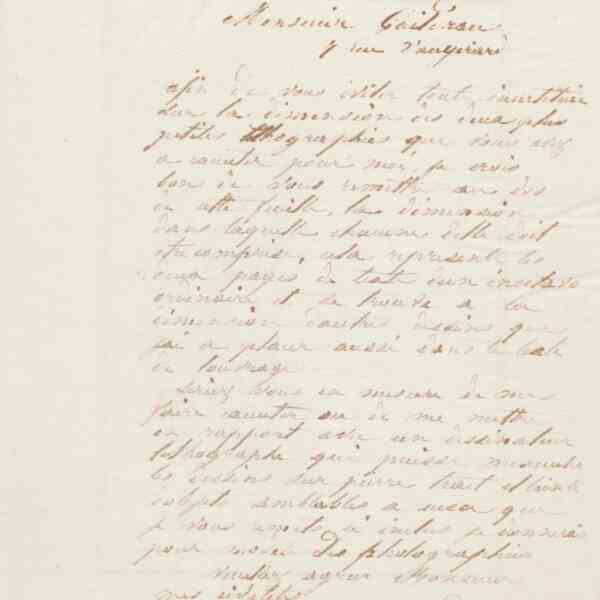 Monsieur
7 rue Vaugirard
afin de vous éviter toute incertitude
sur la dimension des deux plus
petites lithographies que vous avez
a executer pour moi, je crois
bon de vous remettre au dos
de cette feuille, la dimension
dans laquelle chacune d'elle doit
etre comprise, cela represente les
deux pages de texte d'un in octavo
ordinaire et se trouve a la
dimension d'autres dessins que
j'ai a placer aussi dans le
de l'ouvrage
Seriez vous en mesure de me
faire executer ou de me mettre
en rapport avec un dessinateur
lithographe qui puisse m'executer
les dessins sur pierre trait et
semblables a ceux que
je vous remets ci inclus je donnerai
pour Des photographies
Veuillez agreer Monsieur
mes